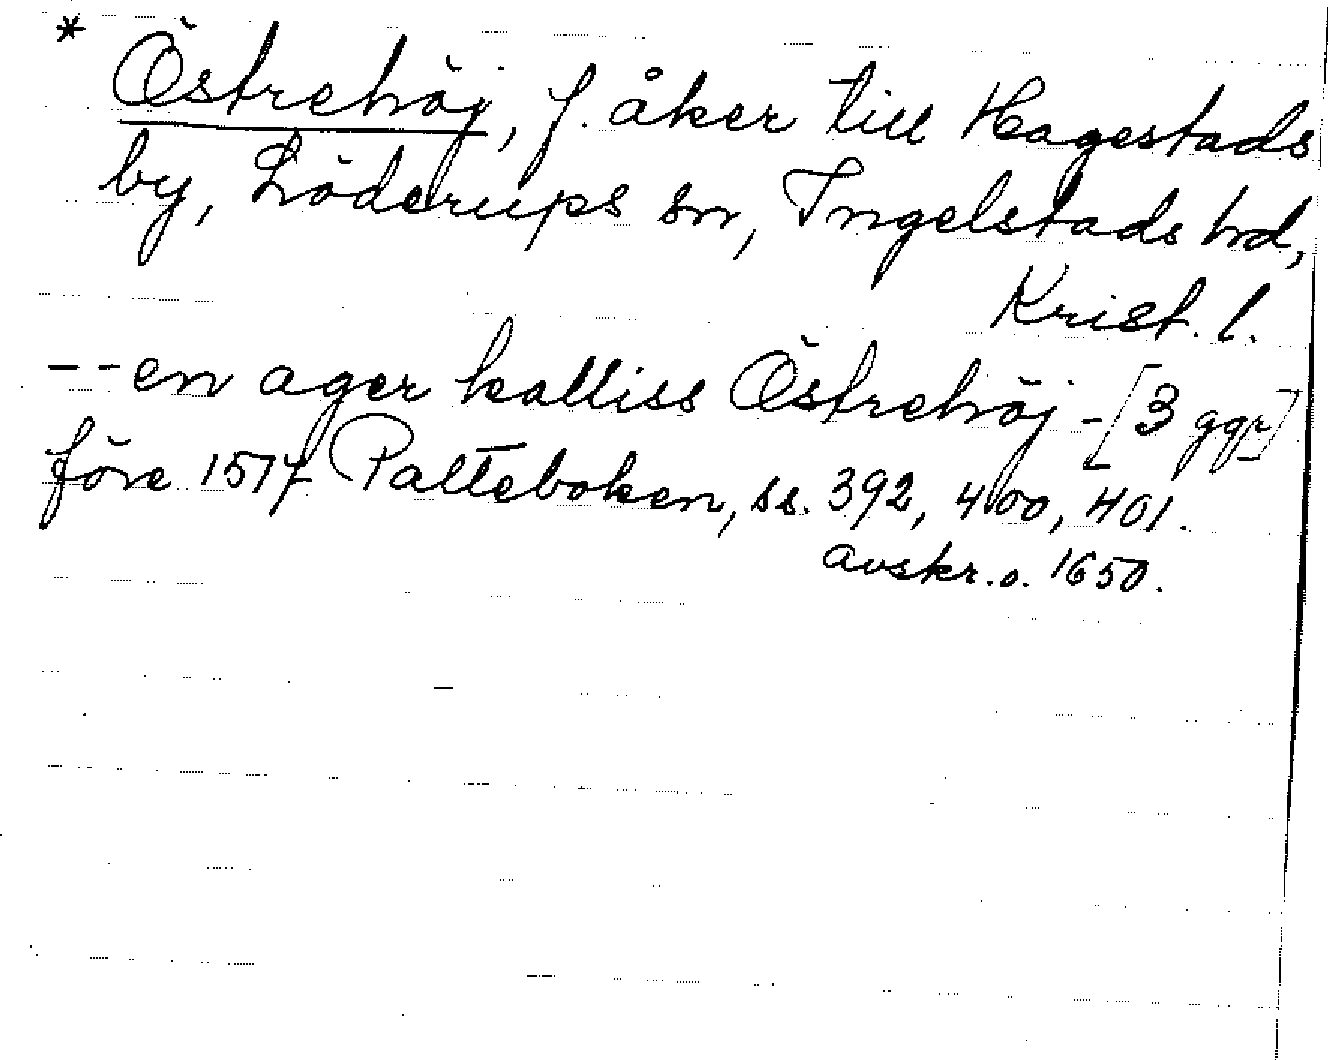 * Östrehöj, f. åker till Hagestads
by, Löderups sn, Ingelstads hd,
Krist. l.
-- en ager kalliss Östrehöj - [3 ggr]
före 1577 Palteboken, ss. 392, 400, 401.
avskr. o. 1650.